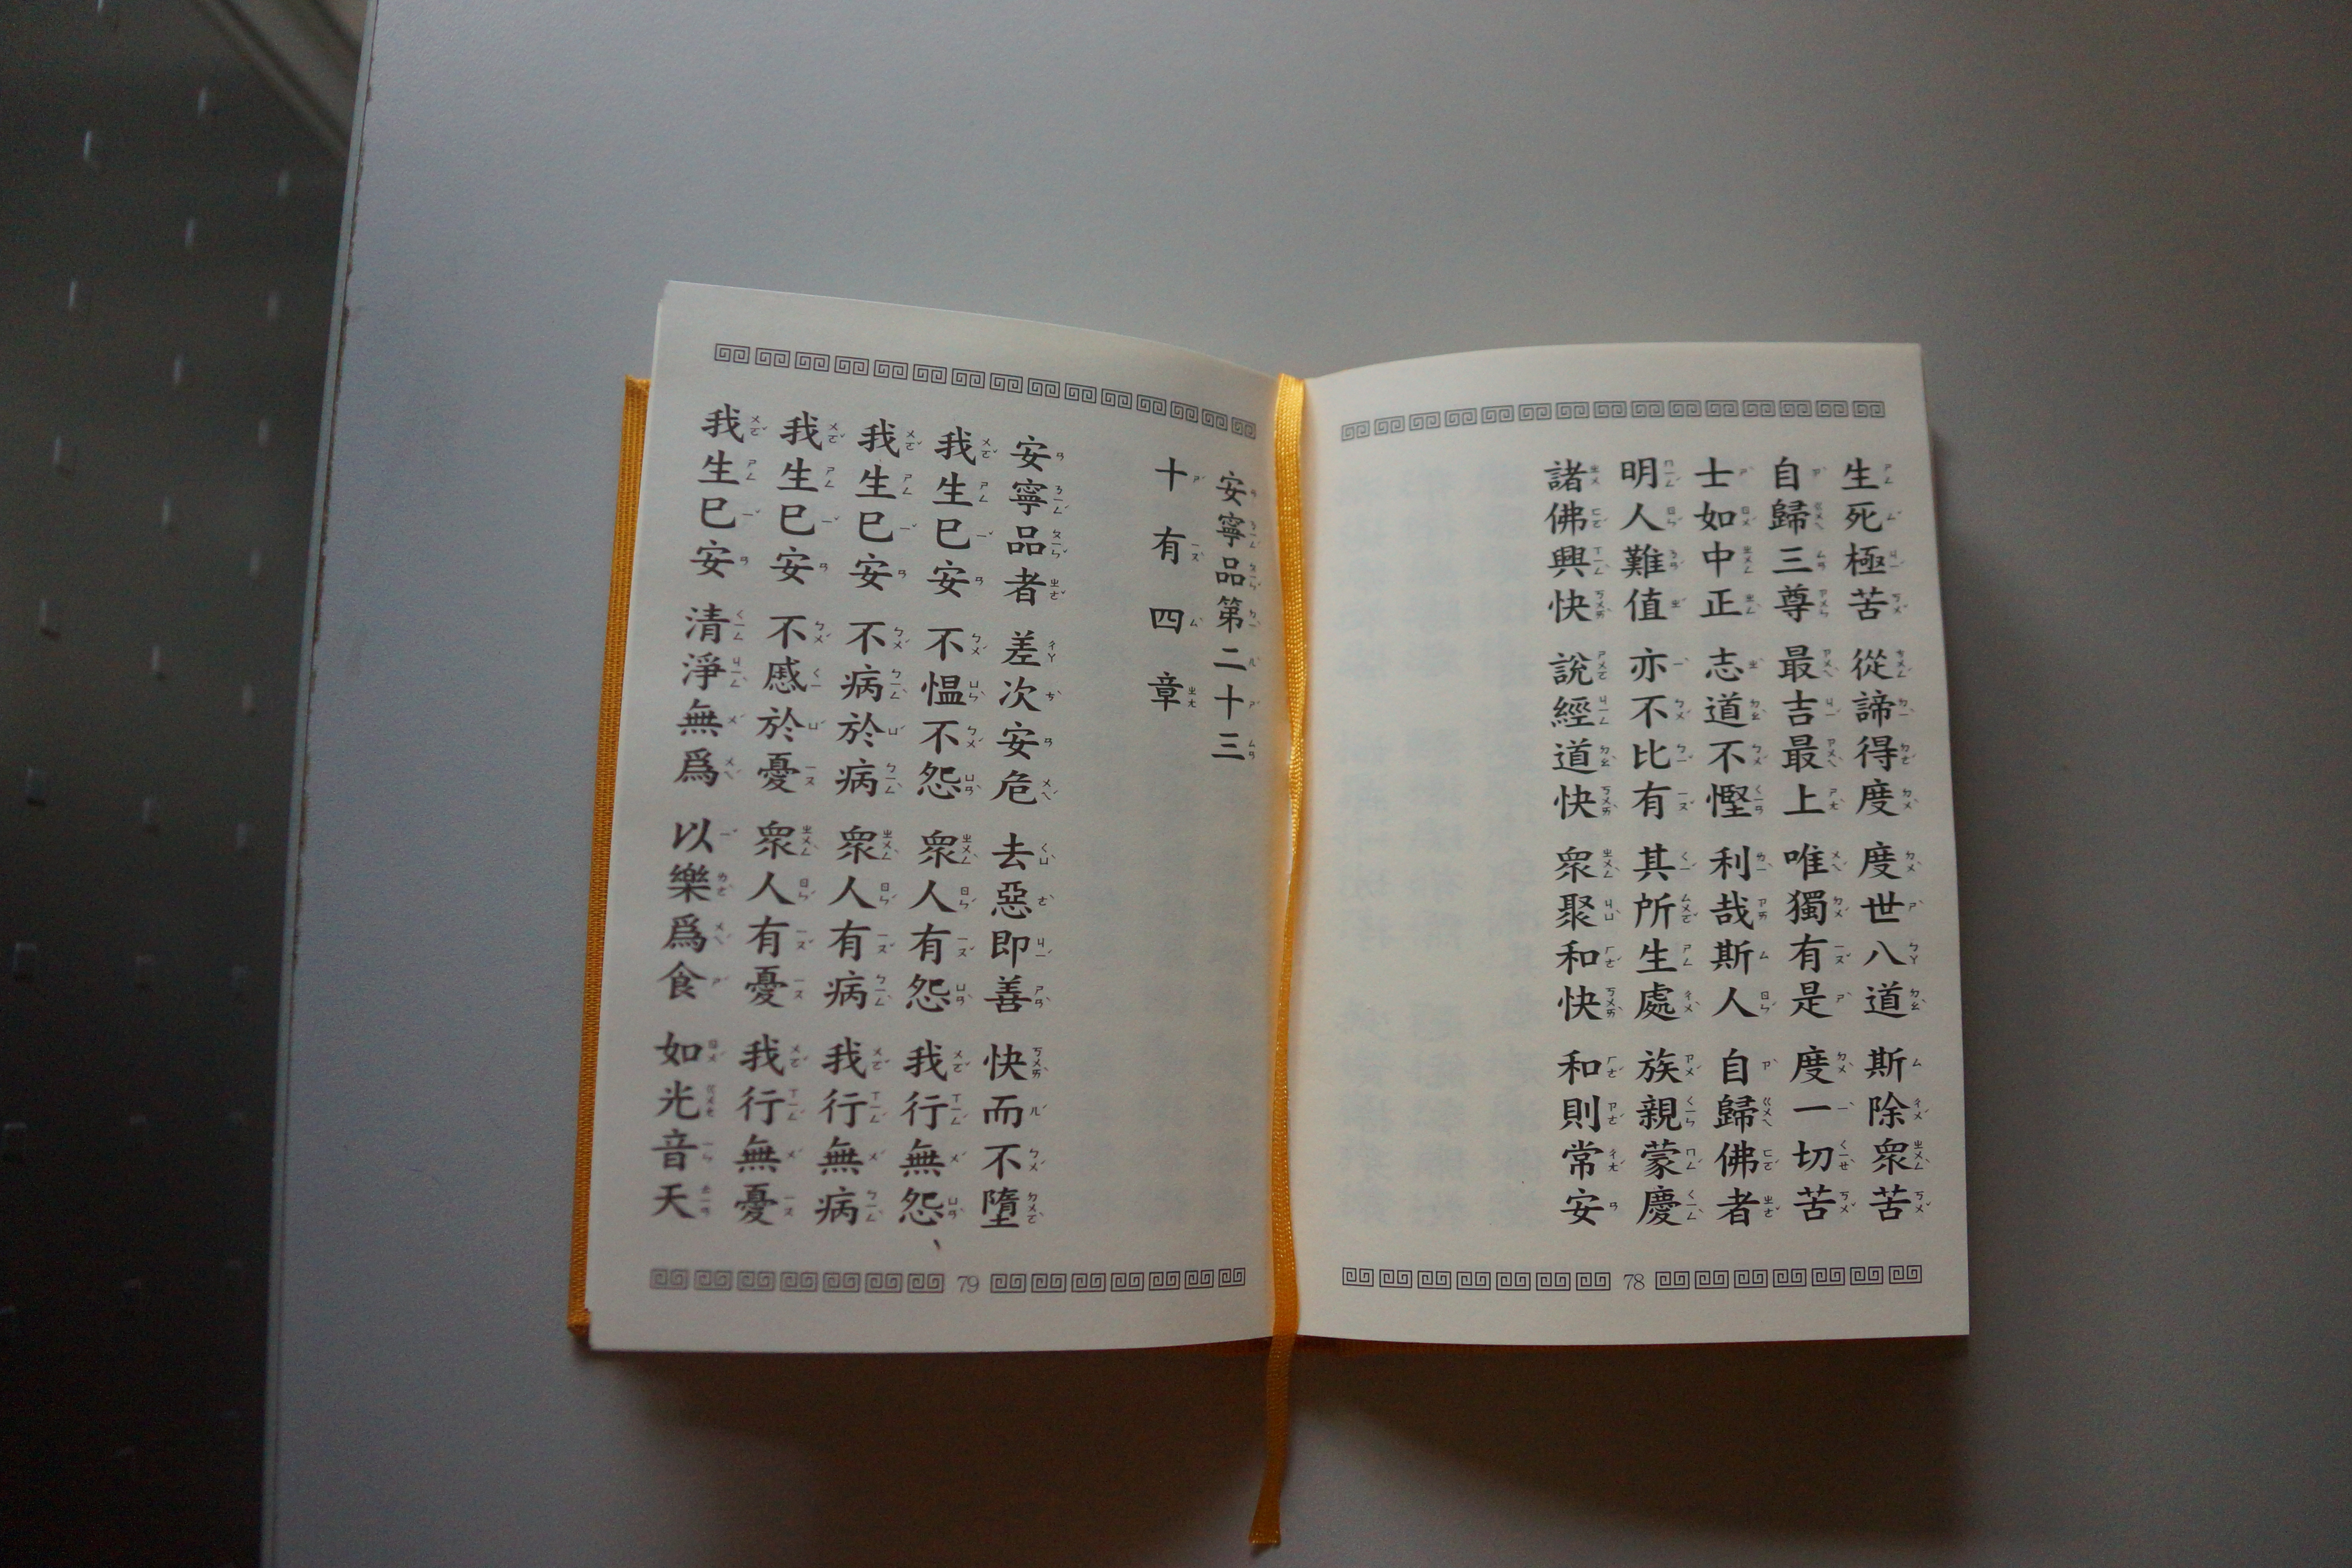 生死極苦 從諦得度 度世八道 斯除衆苦
自歸三尊 最吉最上 唯獨有是 度一切苦
士如中正 志道不慳 利哉斯人 自歸佛者
明人難值 亦不比有 其所生處 族親蒙慶
諸佛興快 說經道快 衆聚和快 和則常安
78
安寧品第二十三
十有四章
安寧品者 差次安危 去惡即善 快而不墮
我生已安 不愠不怨 衆人有怨 我行無怨
我生已安 不病於病 衆人有病 我行無病
我生已安 不慼於憂 衆人有憂 我行無憂
我生已安 清淨無爲 以樂爲食 如光音天
79